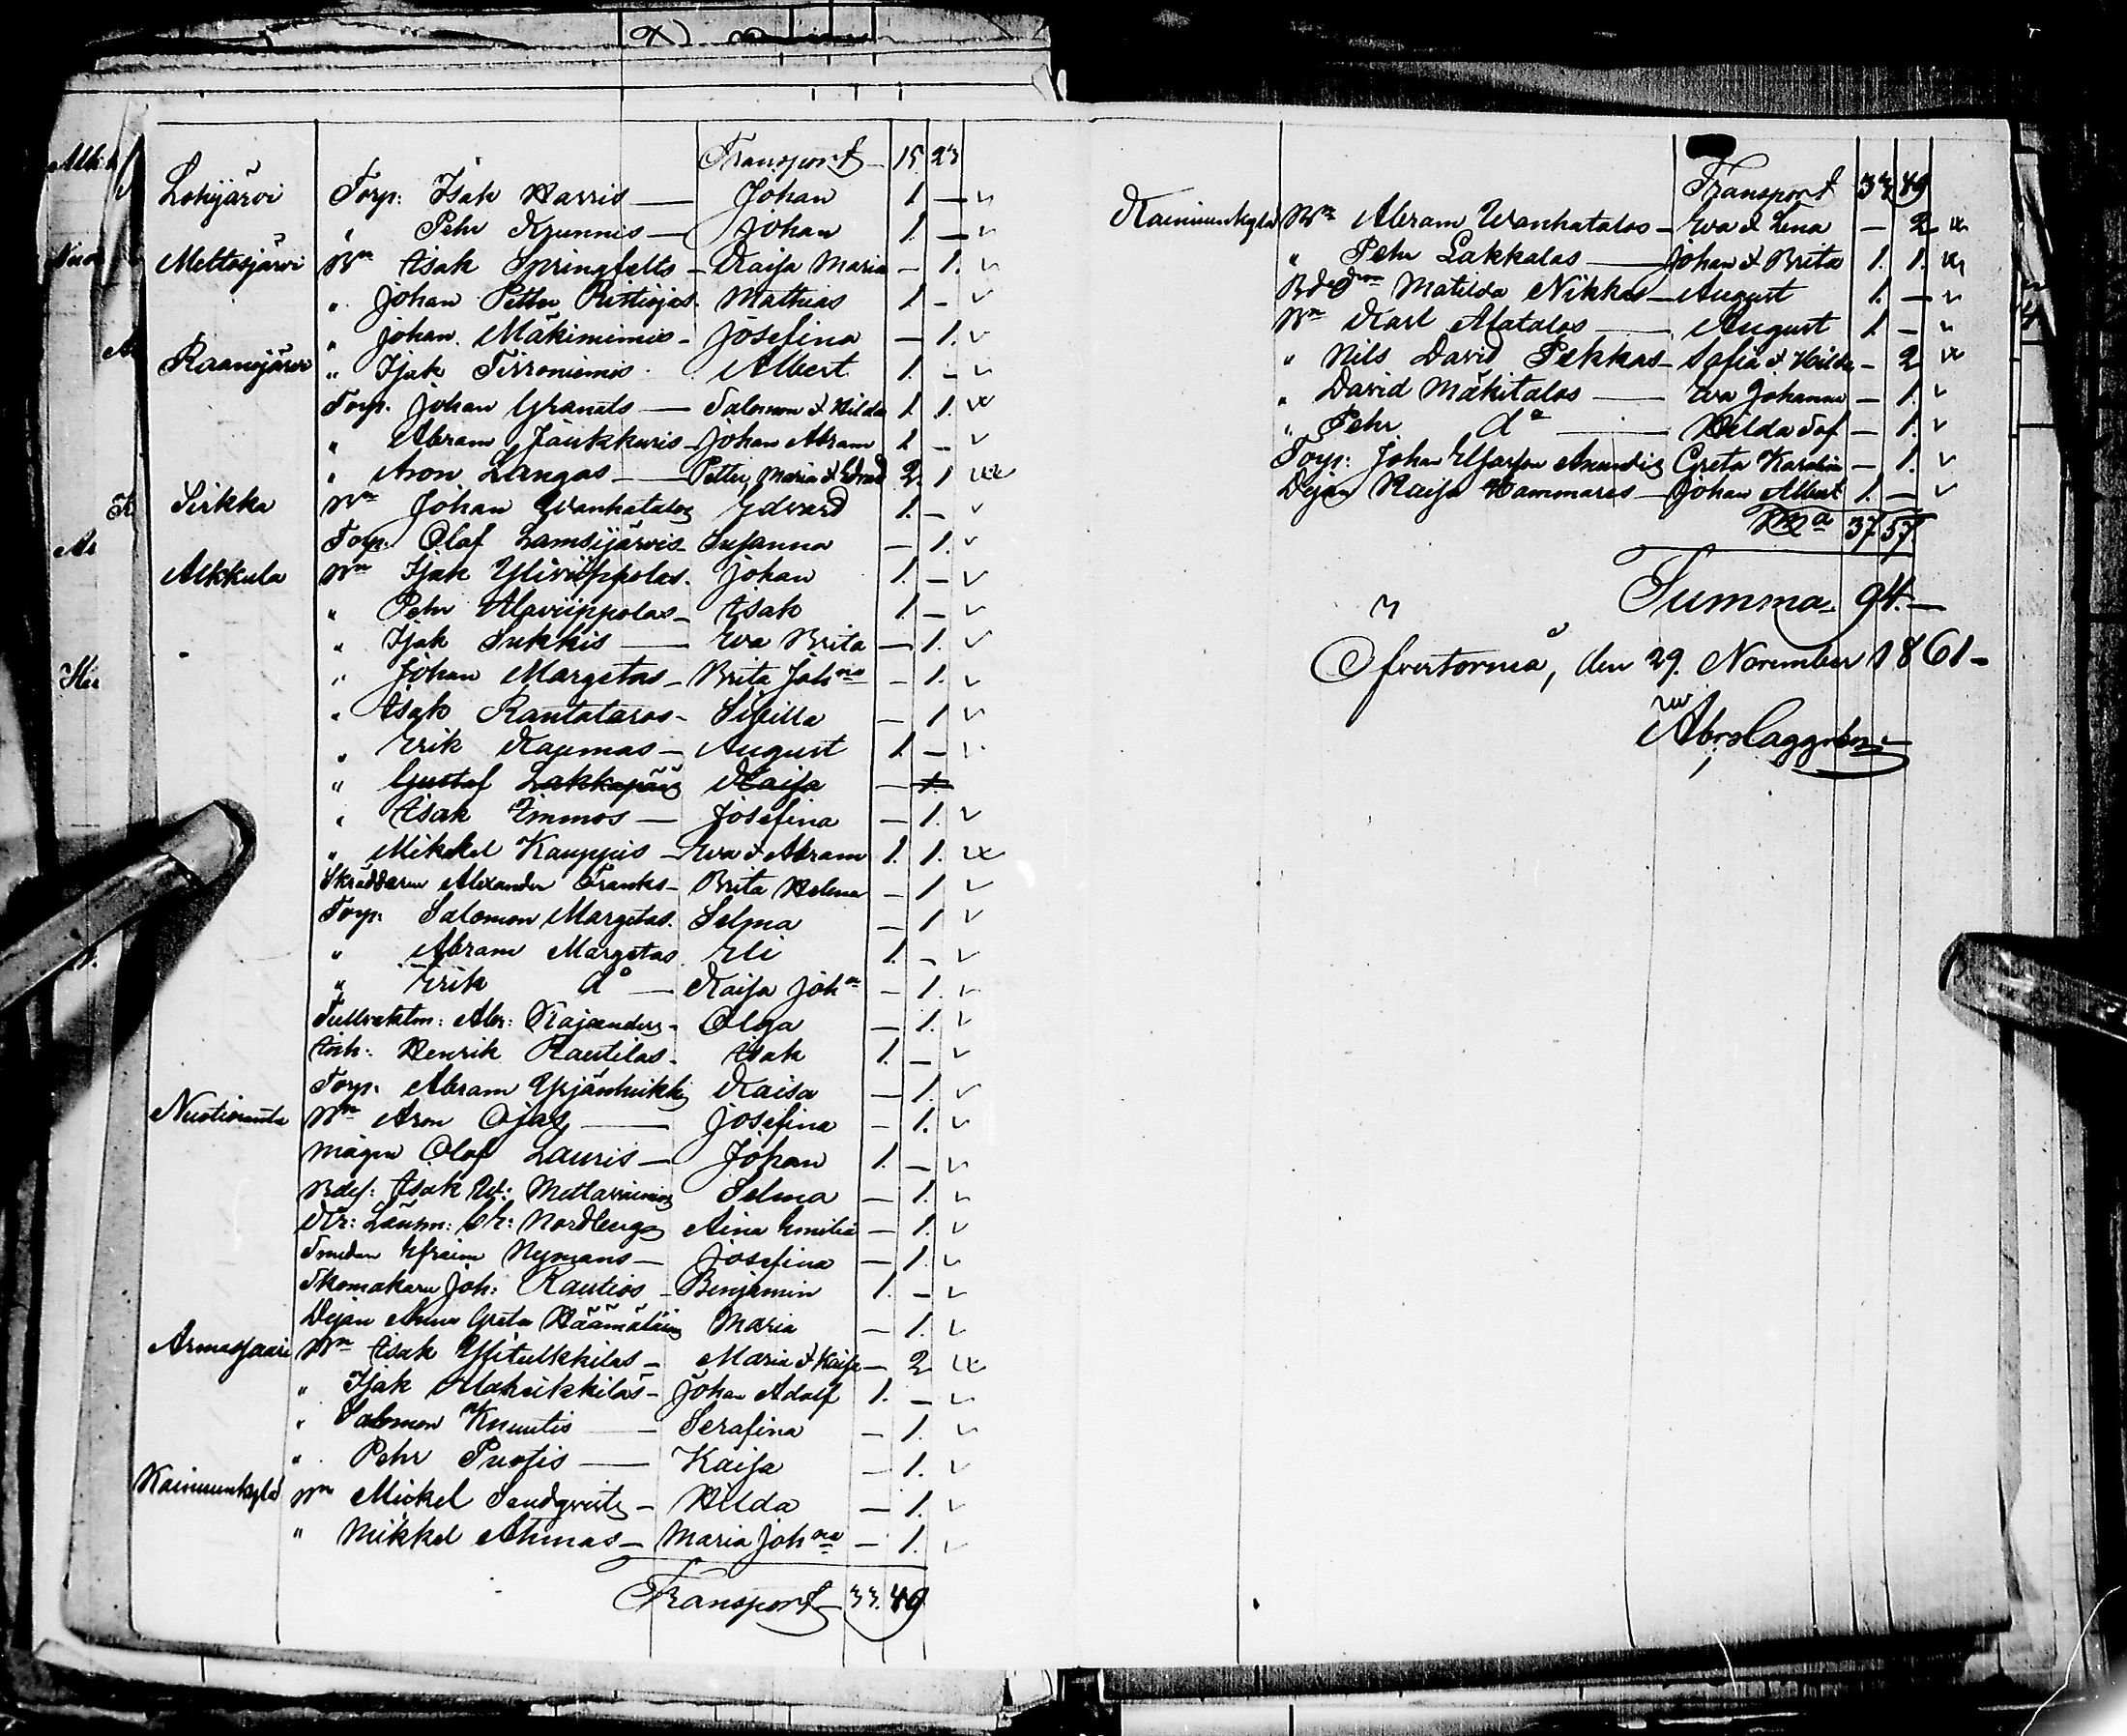 Transport 15. 23
Lohijärvi Torp: Isak Harris — Johan 1 —
" Pehr Krunnis — Johan 1. —
Meltosjärvi Bn Isak Springfelts — Kaisa Maria — 1.
" Johan Petter Ristiojas Mathias 1 —
" Johan Mäkimiemis — Josefina — 1.
Raanujärvi " Isak Tirroniemis Albert 1. —
Torp. Johan Granats — Salomon & Hilda 1. 1.
" Abram Jänkkuris — Johan Abram 1 —
" Aron Langas — Petter, Maria & Edvard 2. 1
Sirkka Bn Johan Wanhatalos Edvard 1. —
Torp. Olof Lamsijärvis — Susanna — 1.
Alkkula Bn Isak Yliviippolas. Johan 1. —
" Pehr Alaviippolas — Isak 1 —
" Isak Sukkis — Eva Brita — 1.
" Johan Margetas — Brita Johna — 1.
" Isak Rantatalos — Sibilla — 1
" Erik Kaumas — August 1. —
" Gustaf Lakkapääs Kaisa — 1.
" Isak Immos — Josefina — 1.
" Mikkel Kauppis — Eva & Abram 1. 1.
Skräddaren Alexander Franks — Brita Helena — 1
Torp: Salomon Margetas. Selma — 1
" Abram Margetas Eli 1. —
" Erik do — Kaisa Johna — 1.
Tullvaktm: Abr: Kajanders — Olga — 1.
Inh: Henrik Rautilas — Isak 1. —
Torp. Abram Yrjänheikkis Kaisa — 1.
Nuotioranta Bn Aron Ojas — Josefina — 1.
Mågen Olof Lauris — Johan 1. —
Bdes: Isak Selma — 1.
Kr: Länsm: Nordbergs Aina Emilia — 1.
Smeden Efraim Nymans — Josefina — 1.
Skomakaren Joh: Rautios — Benjamin 1. —
Dejan Anna Greta Maria — 1.
Armassaari Bn Isak Ylitulkkilas — Maria & Kaisa — 2
" Isak Alatulkkilas — Johan Adolf 1. —
" Salomon Knuutis — Serafina — 1.
" Pehr Puotis — Kaisa — 1.
Kainuunkylä Bn Mickel Sandqvists — Hilda — 1.
" Mikkel Ahmas — Maria Johna — 1.
Transport 33. 49
Transport 33 49
Kainuunkylä Bn Abram Wanhatalos — Eva & Lena — 2
" Pehr Lakkalas — Johan & Brita 1. 1.
Bdedrn Matilda Nikkas — August 1. —
Bn Karl Alatalos — August 1 —
" Nils David Pekkas — Sofia & Hilda — 2
" David Mäkitalos — Eva Johanna — 1.
" Pehr do — Hilda Sof. — 1.
Torp: Johan Greta Karolina — 1.
Dejan Kaisa Hammares — Johan Albert 1. —
Sma 37 57
Summa 94. —
Öfvertorneå, den 29. November 1861 —